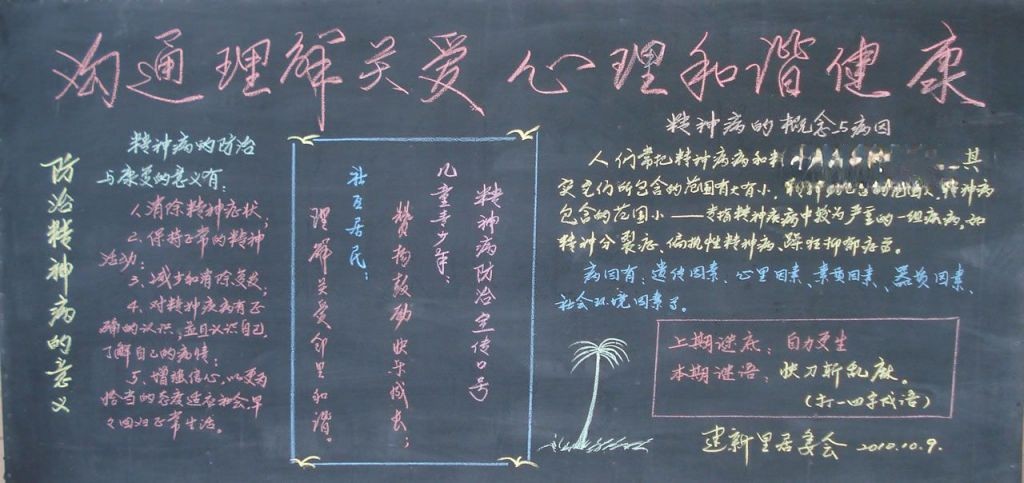 沟通理解关爱 心理和谐健康
防治精神病的意义
精神病的防治
与康复的意义有:
1、消除精神症状;
2、保持正常的精神
活动;
3、减少和消除复发;
4、对精神疾病有正
确的认识,并且认识自己,
了解自己的病情;
5、增强信心,以更为
恰当的态度适应社会,早
日回归正常生活。
精神病防治宣传口号
儿童青少年:
赞扬鼓励 快乐成长;
社区居民:
理解关爱 邻里和谐。
精神病的概念与病因
人们常把精神病病和
其
实它们所包含的范围有大有小,
精神病
包含的范围小——专指精神疾病中较为严重的一组疾病,如
精神分裂症、偏执性精神病、躁狂抑郁症等。
病因有:遗传因素、心里因素、素质因素、器质因素、
社会环境因素等。
上期谜底:自力更生
本期谜语:快刀斩乱麻。
(打一四字成语)
建新里居委会 2010.10.9.